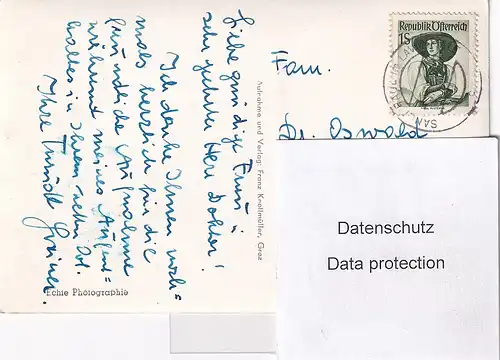 Liebe gnädige Frau u.
sehr geehrter Herr Doktor!
Ich danke Ihnen noch=
mals herzlich für die
freundliche Aufnahme
während meines Aufent=
haltes in Ihrem Ort.
Ihre Trude
Echte Photographie
Aufnahme und Verlag: Franz Knollmüller, Graz
Republik Österreich
1S
Fam.
Dr. Oswald
Datenschutz
Data protection